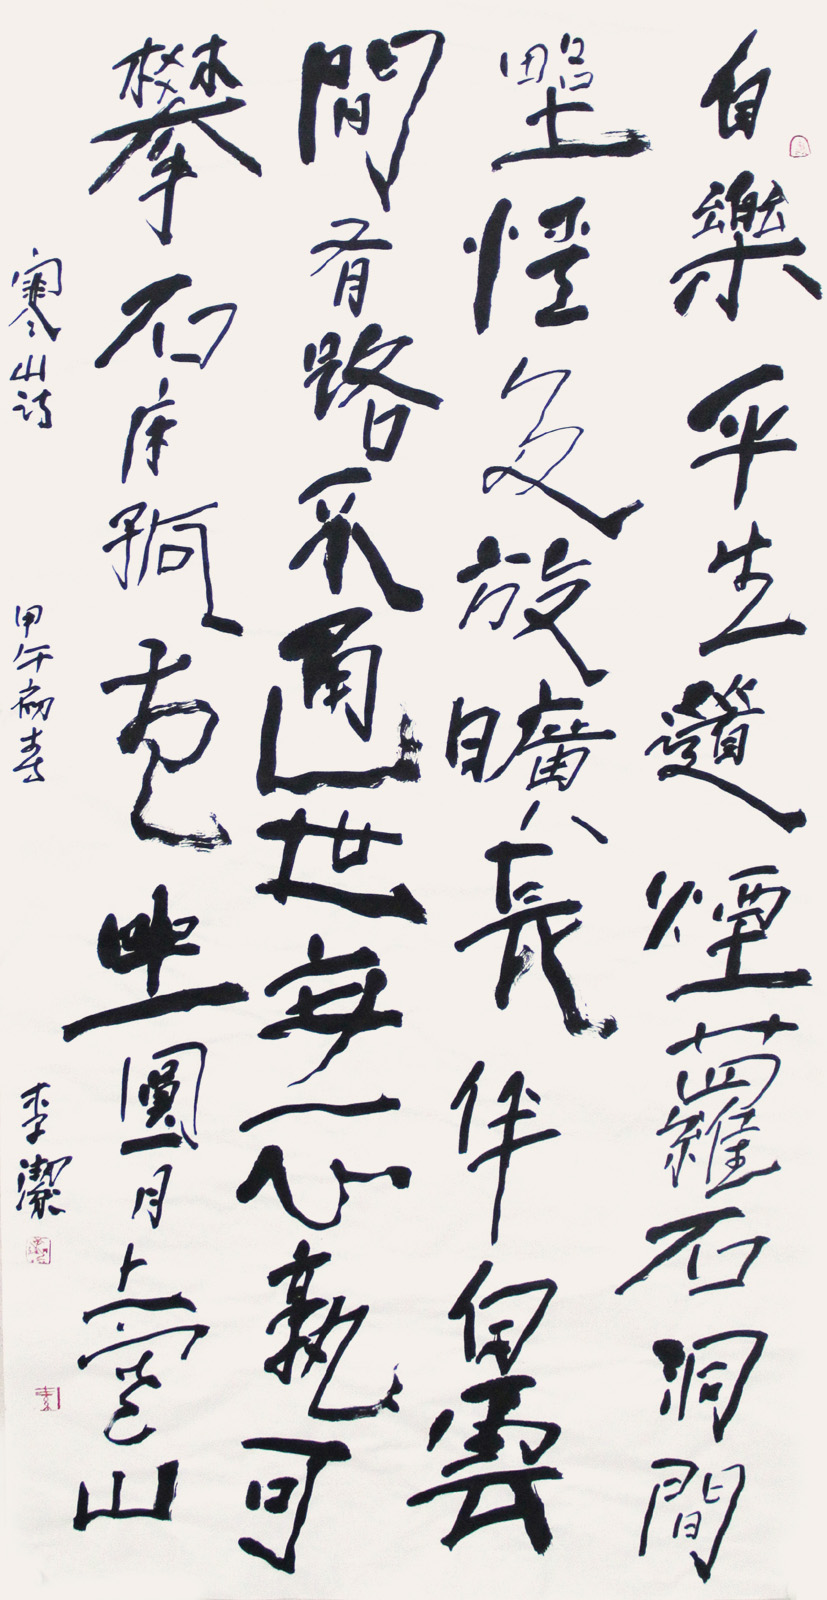 自樂平生道煙蘿石洞間
野情多放曠長伴白雲
閒有路不通世無心孰可
攀石床孤夜坐圓月上寒山
寒山詩 甲午初春 李潔